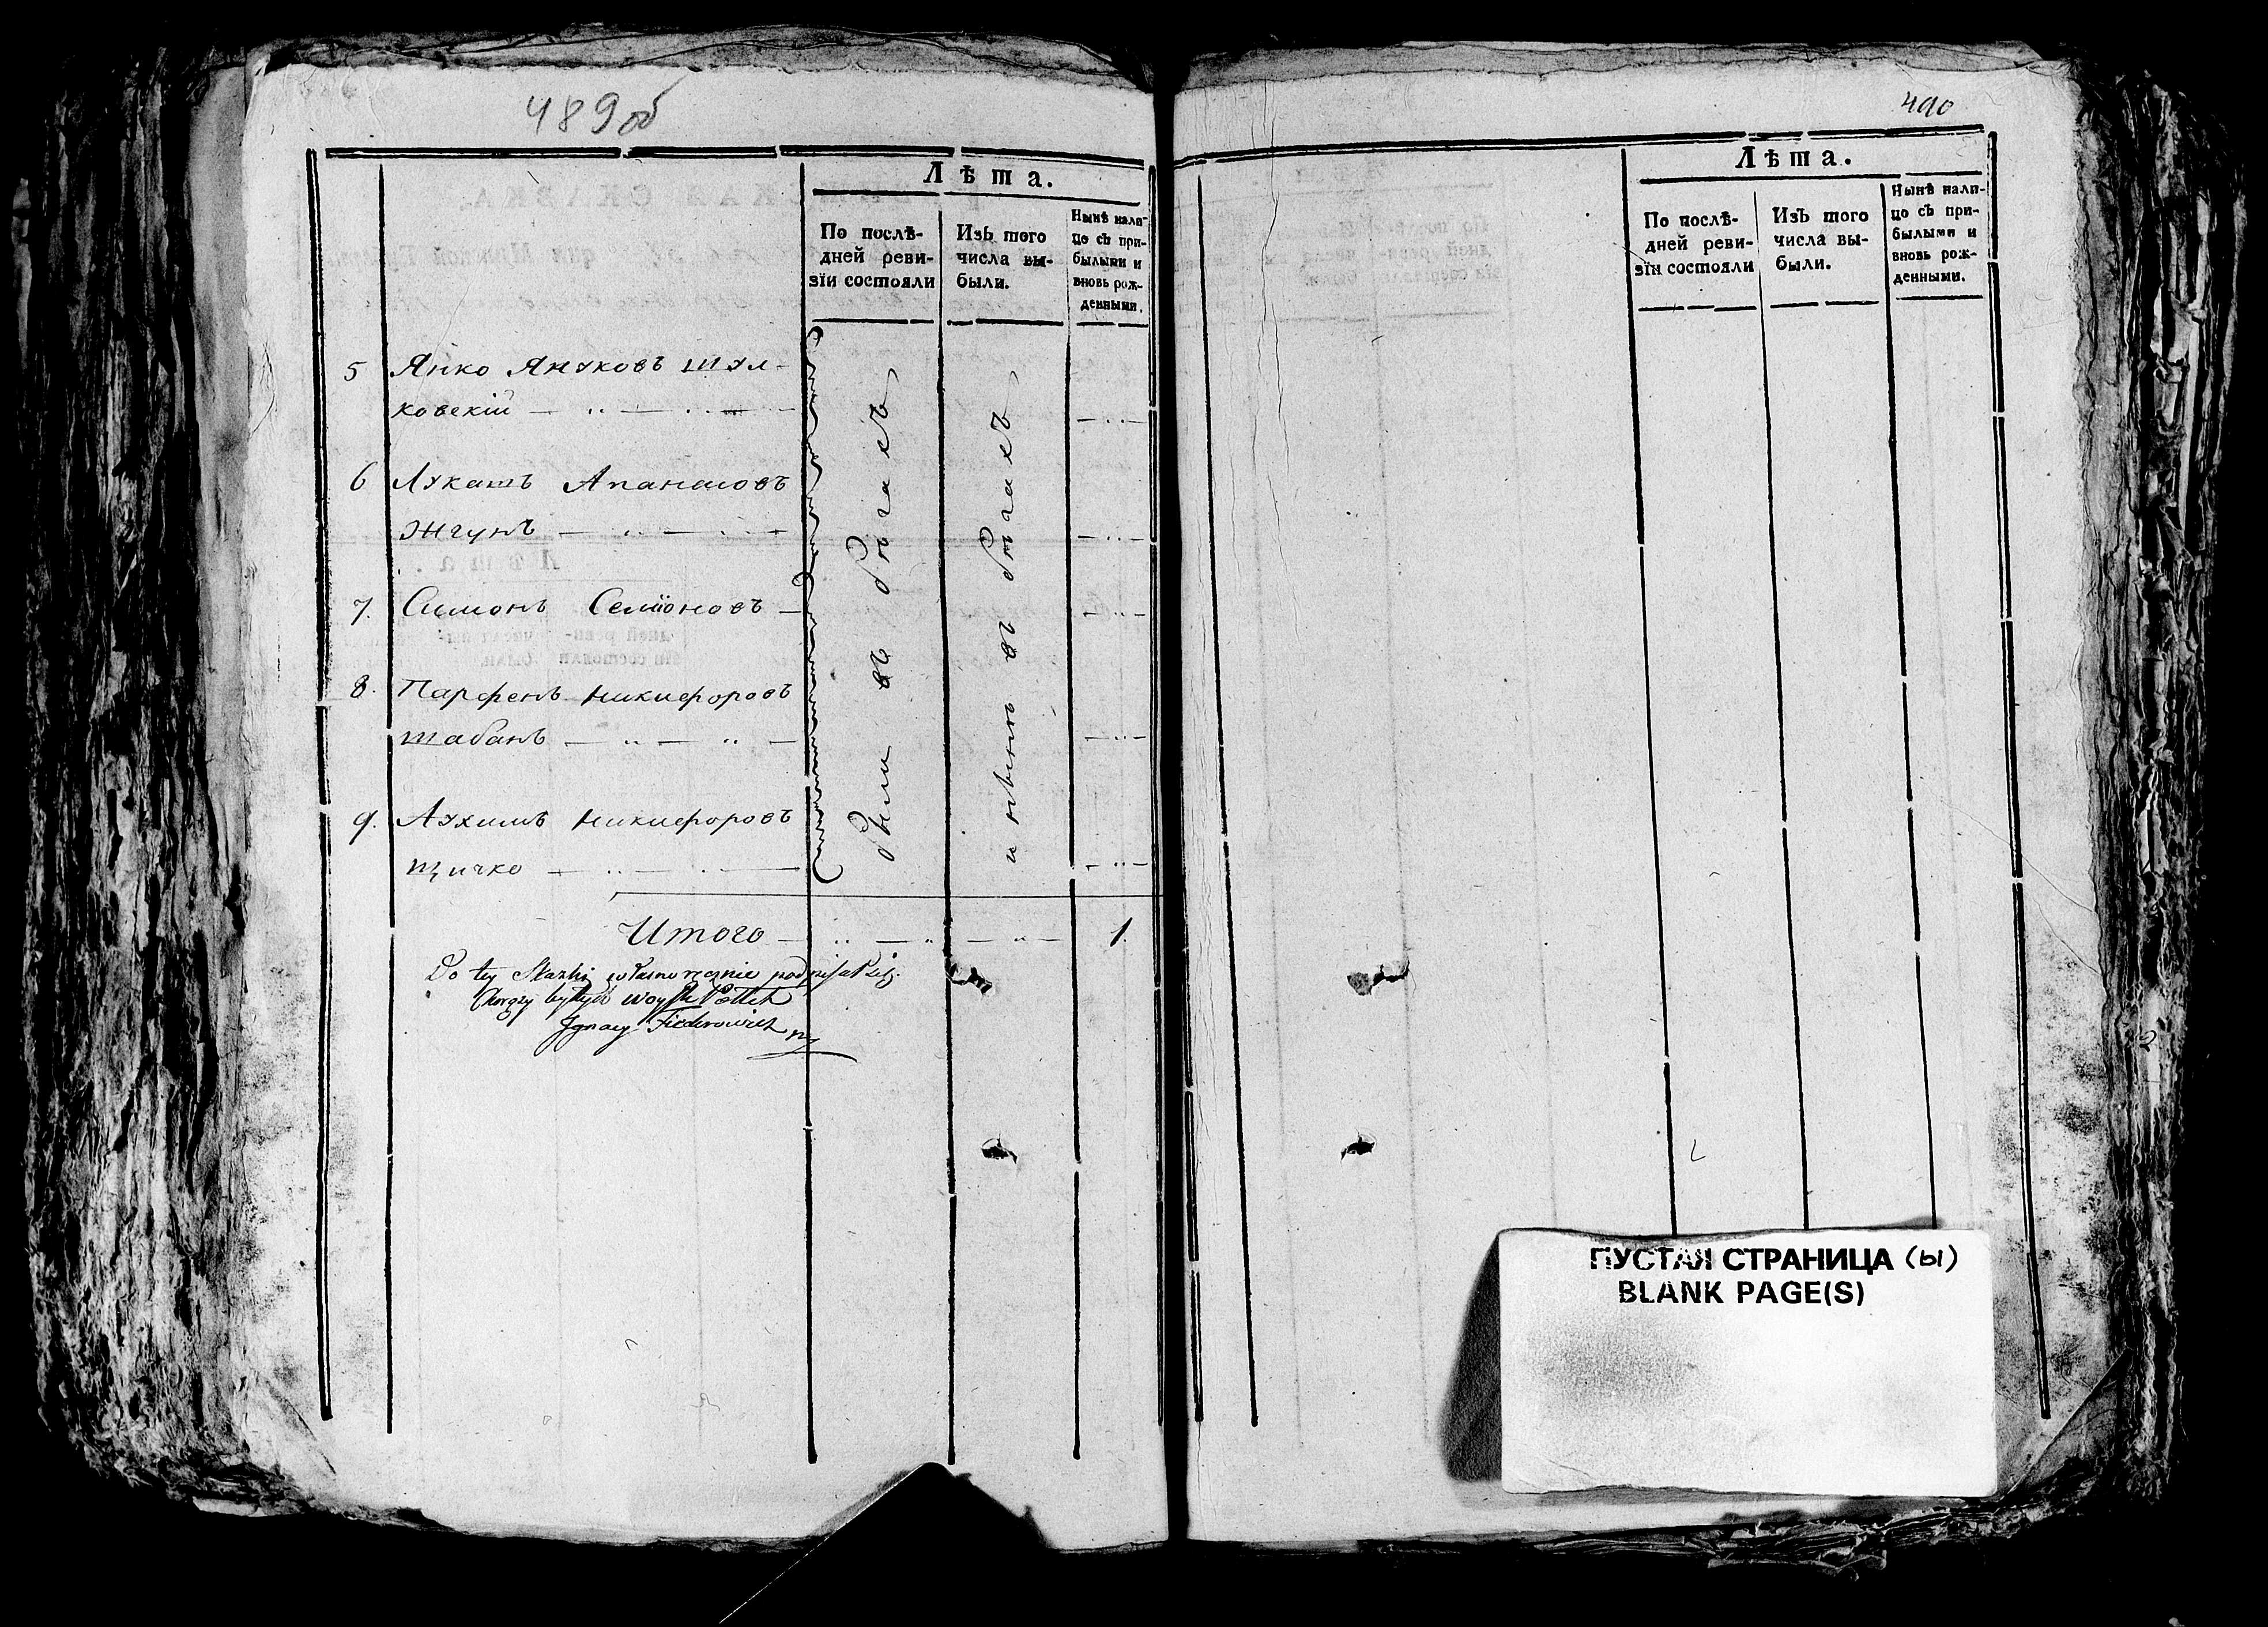 489 об
Лѣта.
По послѣ-
дней реви-
зіи состояли
Изъ того
числа вы-
были.
Нынѣ нали-
цо съ при-
былыми и
вновь рож-
денными.
5 Янко Януковъ шул-
ковскій
6 Лукашъ Апанасовъ
Жгунъ
7. Симонъ Семіоновъ
8. Парфенъ Никифоровъ
шабанъ
9. Аухимъ Никифоровъ
Были въ бѣгахъ
и нынѣ въ бѣгахъ
Итого 1.
Do tey Skazki własnoręcznie podpisał się
Chorąży były woysk Polskich
Ignacy Fiedorowicz
490
Лѣта.
По послѣ-
дней реви-
зіи состояли
Изъ того
числа вы-
были.
Нынѣ нали-
цо съ при-
былыми и
вновь рож-
денными.
ПУСТАЯ СТРАНИЦА (ы)
BLANK PAGE(S)